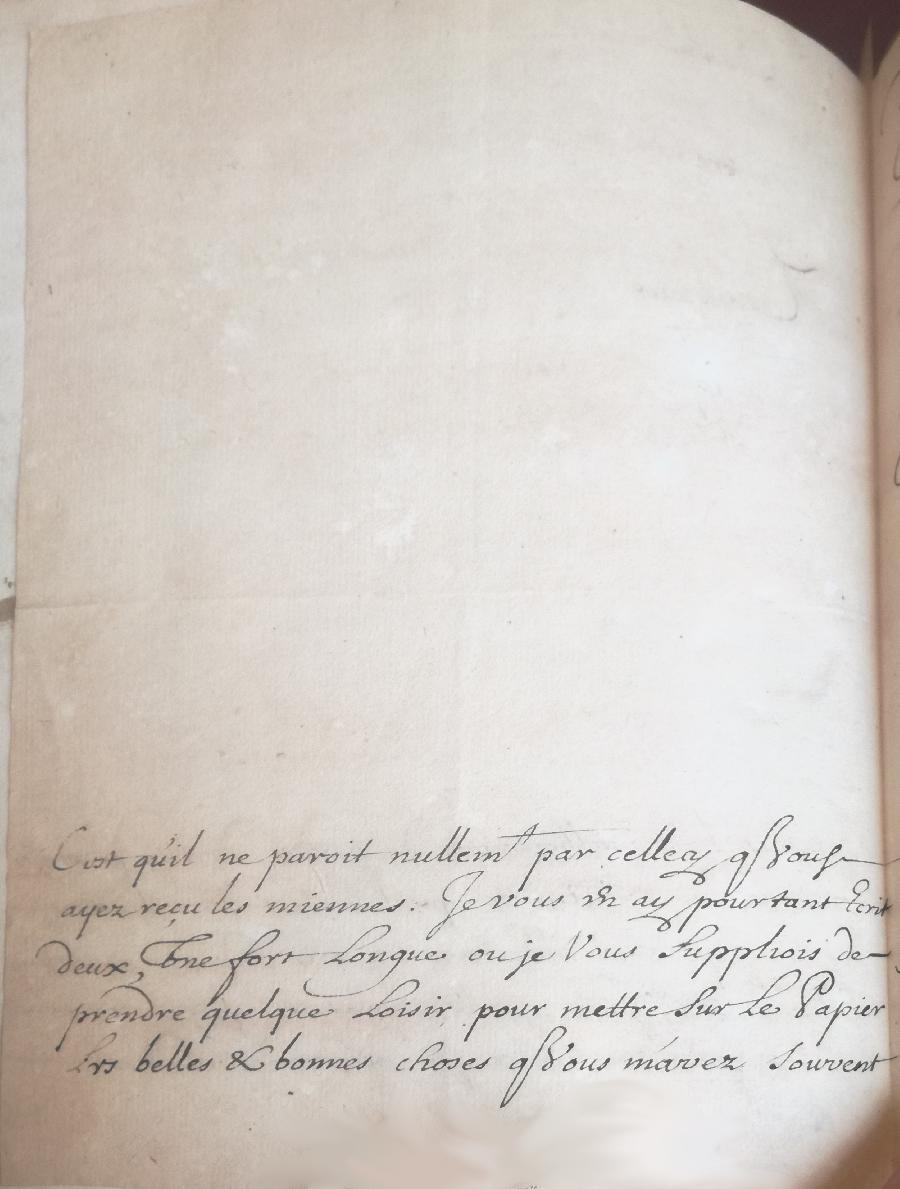 C'est qu'il ne paroit nullemt par cellecy qs Vous
ayez reçu les miennes. Je vous en ay pourtant Ecrit
deux, Vne fort Longue ou je Vous Suppliois de
prendre quelque Loisir pour mettre Sur Le Papier
Les belles & bonnes choses qs Vous m'avez Souvent